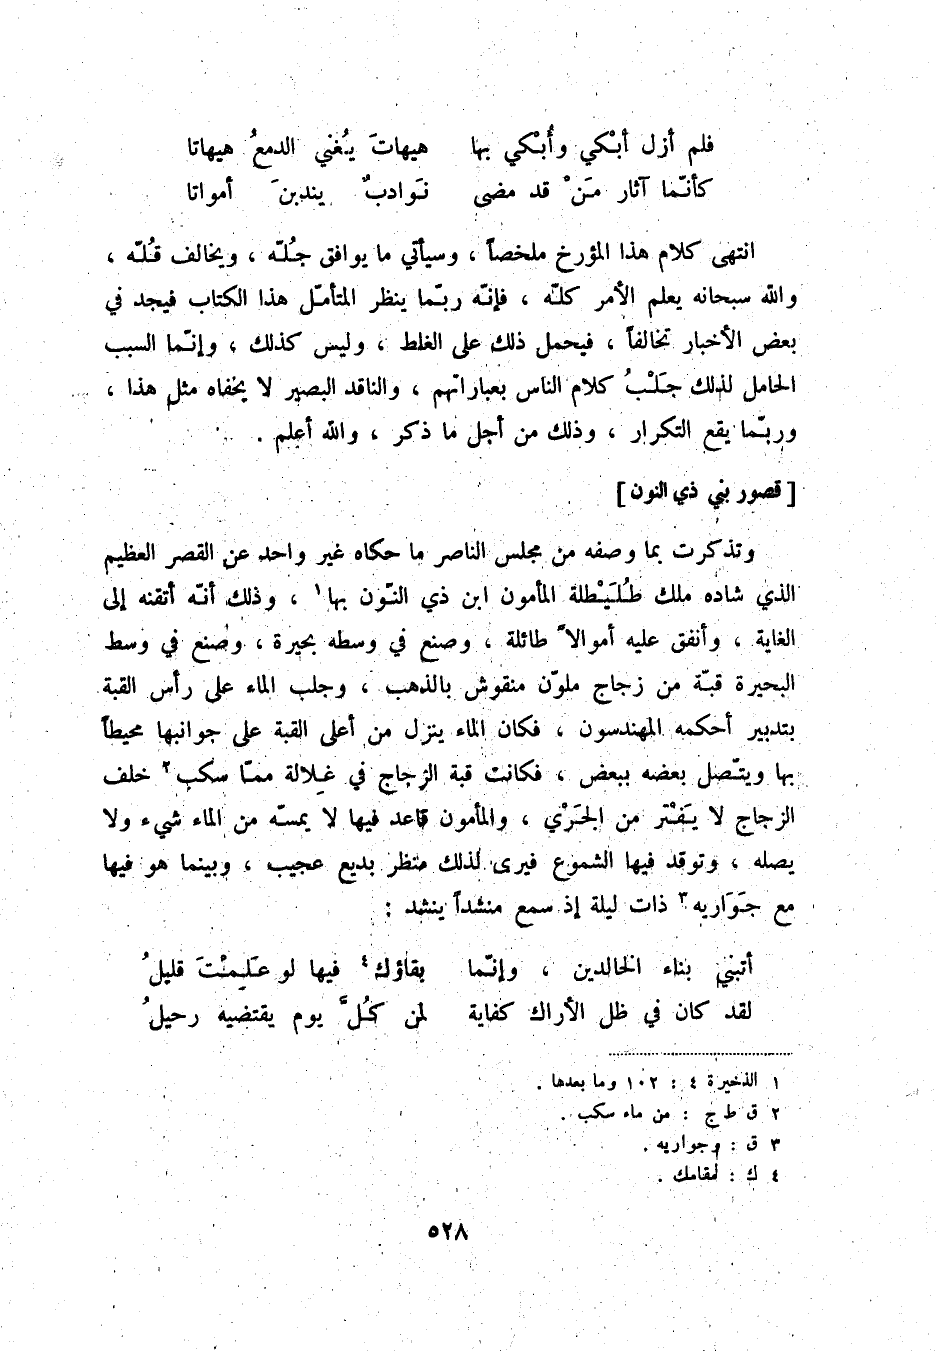 فلم أزل أبْكي وأُبْكي بها هيهاتَ يُغني الدمعُ هيهاتا
كأنّما آثار مَنْ قد مضى نَوادبٌ يندبنَ أمواتا
انتهى كلام هذا المؤرخ ملخصاً ، وسيأتي ما يوافق جُلّه ، ويخالف قُلّه ،
والله سبحانه يعلم الأمر كلّه ، فإنّه ربّما ينظر المتأمّل هذا الكتاب فيجد في
بعض الأخبار تخالفاً ، فيحمل ذلك على الغلط ، وليس كذلك ، وإنّما السبب
الحامل لذلك جَلْبُ كلام الناس بعباراتهم ، والناقد البصير لا يخفاه مثل هذا ،
وربّما يقع التكرار ، وذلك من أجل ما ذكر ، والله أعلم .
[ قصور بني ذي النون ]
وتذكرت بما وصفه من مجلس الناصر ما حكاه غير واحد عن القصر العظيم
الذي شاده ملك طُلَيْطلة المأمون ابن ذي النّون بها١ ، وذلك أنّه أتقنه إلى
الغاية ، وأنفق عليه أموالاً طائلة ، وصنع في وسطه بحيرة ، وصنع في وسط
البحيرة قبّة من زجاج ملوّن منقوش بالذهب ، وجلب الماء على رأس القبة
بتدبير أحكمه المهندسون ، فكان الماء ينزل من أعلى القبة على جوانبها محيطاً
بها ويتّصل بعضه ببعض ، فكانت قبة الزجاج في غِلالة ممّا سكب٢ خلف
الزجاج لا يَفْتَر من الجَرْي ، والمأمون قاعد فيها لا يمسّه من الماء شيء ولا
يصله ، وتوقد فيها الشموع فيرى لذلك منظر بديع عجيب ، وبينما هو فيها
مع جَوَاريه٣ ذات ليلة إذ سمع منشداً ينشد :
أتبني بناء الخالدين ، وإنّما بقاؤك٤ فيها لو عَلِمْتَ قليلُ
لقد كان في ظل الأراك كفاية لمن كُلَّ يوم يقتضيه رحيلُ
١ الذخيرة ٤ : ١٠٢ وما بعدها .
٢ ق ط ج : من ماء سكب .
٣ ق : وجواريه .
٤ ك : مقامك .
٥٢٨